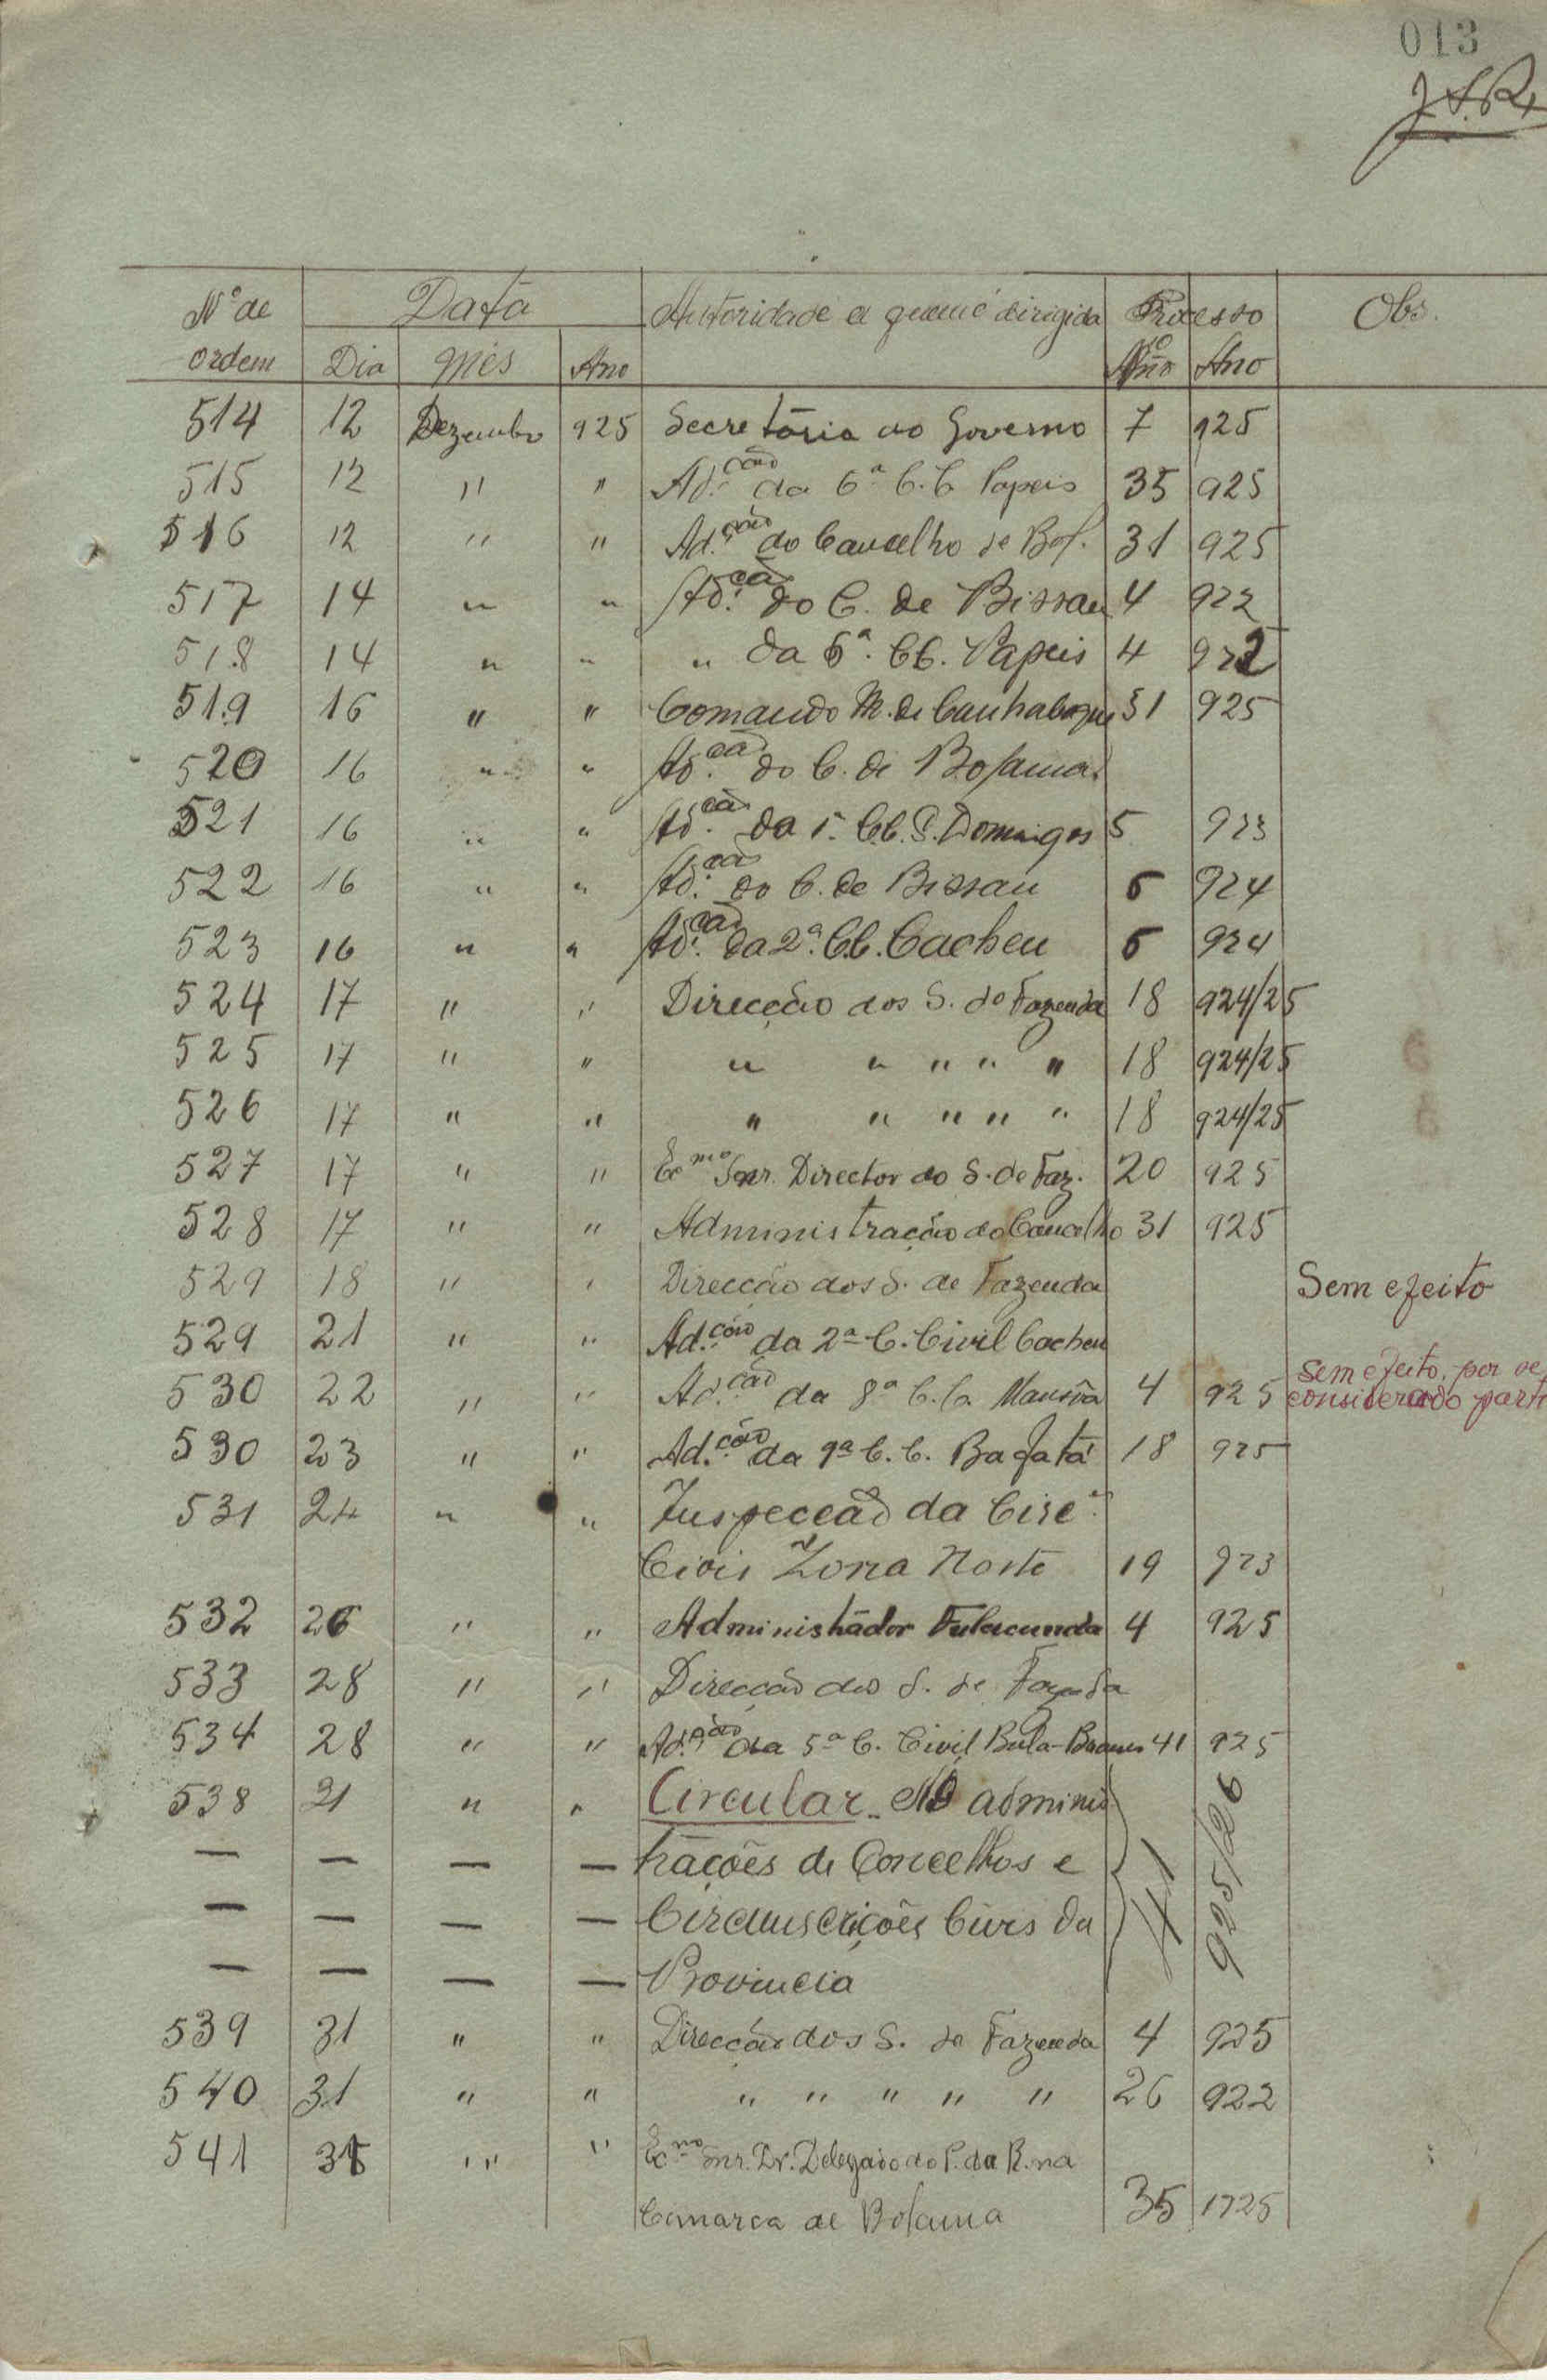 013
Nº de Data Autoridade a quem é dirigida Processo Obs.
ordem Dia Mês Ano Nº Ano
514 12 Dezembro 925 Secretária do Governo 7 925
515 12 " " Ad.ção da 6ª C.C. Papeis 35 925
516 12 " " Ad.ção do Concelho de Bol. 31 925
517 14 " " Ad.ção do C. de Bissau 4 922
518 14 " " " da 6ª. CC. Papeis 4 922
519 16 " " Comando M. de Canhabaque 31 925
520 16 " " Ad.ção do C. de Bolama
521 16 " " Ad.ção da 1ª. CC. S. Domingos 5 923
522 16 " " Ad.ção do C. de Bissau 6 924
523 16 " " Ad.ção da 2ª. CC. Cacheu 6 924
524 17 " " Direcção dos S. de Fazenda 18 924/25
525 17 " " " " " " " 18 924/25
526 17 " " " " " " " 18 924/25
527 17 " " Ecmo Snr. Director do S. de Faz. 20 925
528 17 " " Administração do Concelho 31 925
529 18 " " Direcção dos S. de Fazenda Sem efeito
529 21 " " Ad.ção da 2ª C. Civil Cacheu
530 22 " " Ad.ção da 8ª C.C. Mansôa 4 925 Sem efeito, por se
considerado parti
530 23 " " Ad.ção da 9ª C. C. Bafatá 18 925
531 24 " " Inspecção da Circ.
Civis Zona Norte 19 923
532 26 " " Administrador Fulacunda 4 925
533 28 " " Direcção dos S. de Fazenda
534 28 " " Ad.ção da 5ª C. Civil Bula-Brames 41 925
538 31 " " Circular adminis
— — — — trações de Concelhos e 41 925/26
— — — — Circunscrições Civis da
— — — — Provincia
539 31 " " Direcção dos S. de Fazenda 4 925
540 31 " " " " " " " 26 922
541 31 " " Ecmo Snr. Dr. Delegado do P. da R. na
Comarca de Bolama 35 1925